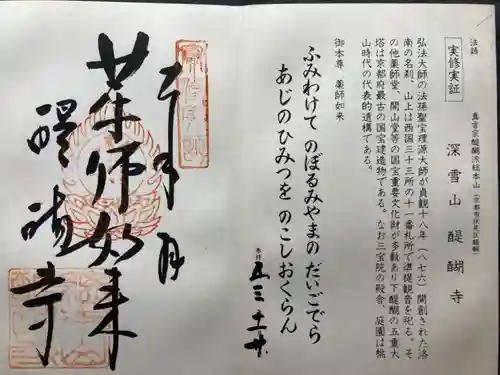 法話
実修実証
真言宗醍醐派総本山(京都市伏見区醍醐)
深雪山 醍醐寺
弘法大師の法孫聖宝理源大師が貞観十八年(八七六)開創された洛
南の名刹。山上は西国三十三所の十一番札所で準提観音を祀る。そ
の他薬師堂、開山堂等の国宝重要文化財が多数あり下醍醐の五重大
塔は京都府最古の国宝建造物である。なお三宝院の殿舎、庭園は桃
山時代の代表的遺構である。
御本尊 薬師如来
ふみわけて のぼるみやまの だいごでら
あじのひみつを のこしおくらん
年 月 日
薬師如来
醍醐寺